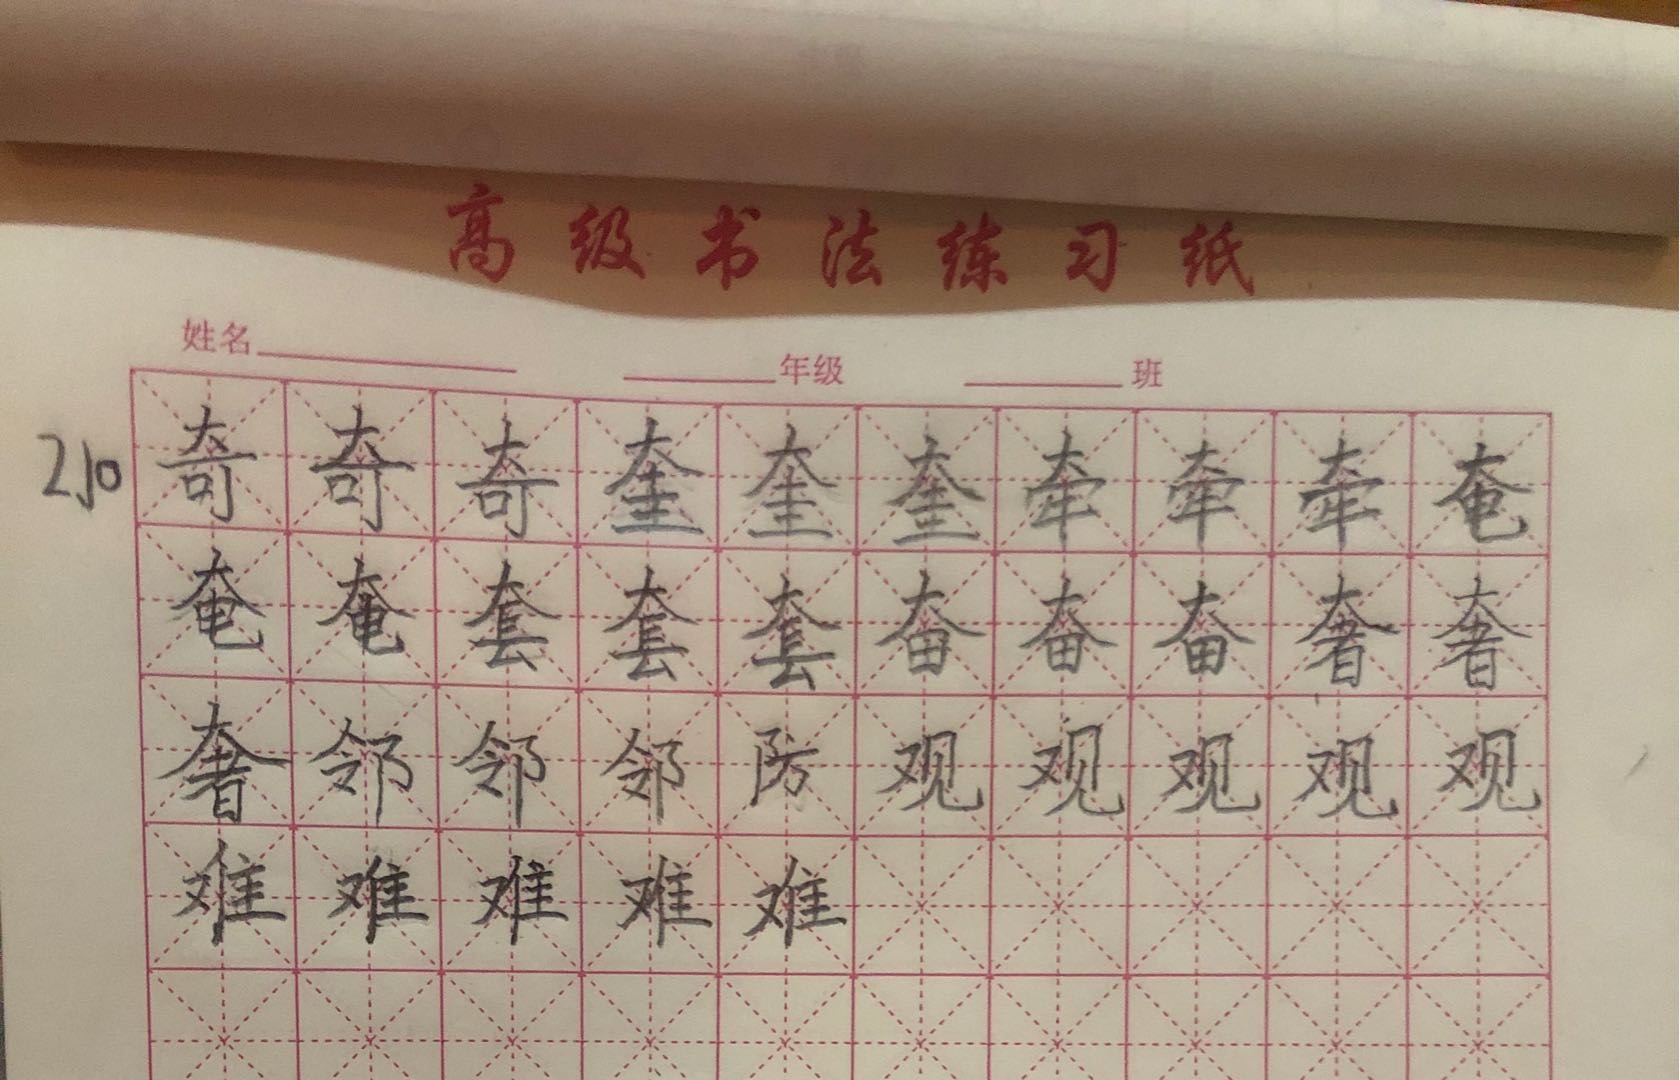 高级书法练习纸
姓名 年级 班
210 奇奇奇奎奎奎牵牵牵奄
奄奄套套套奋奋奋奢奢
奢邻邻邻防观观观观观
难难难难难